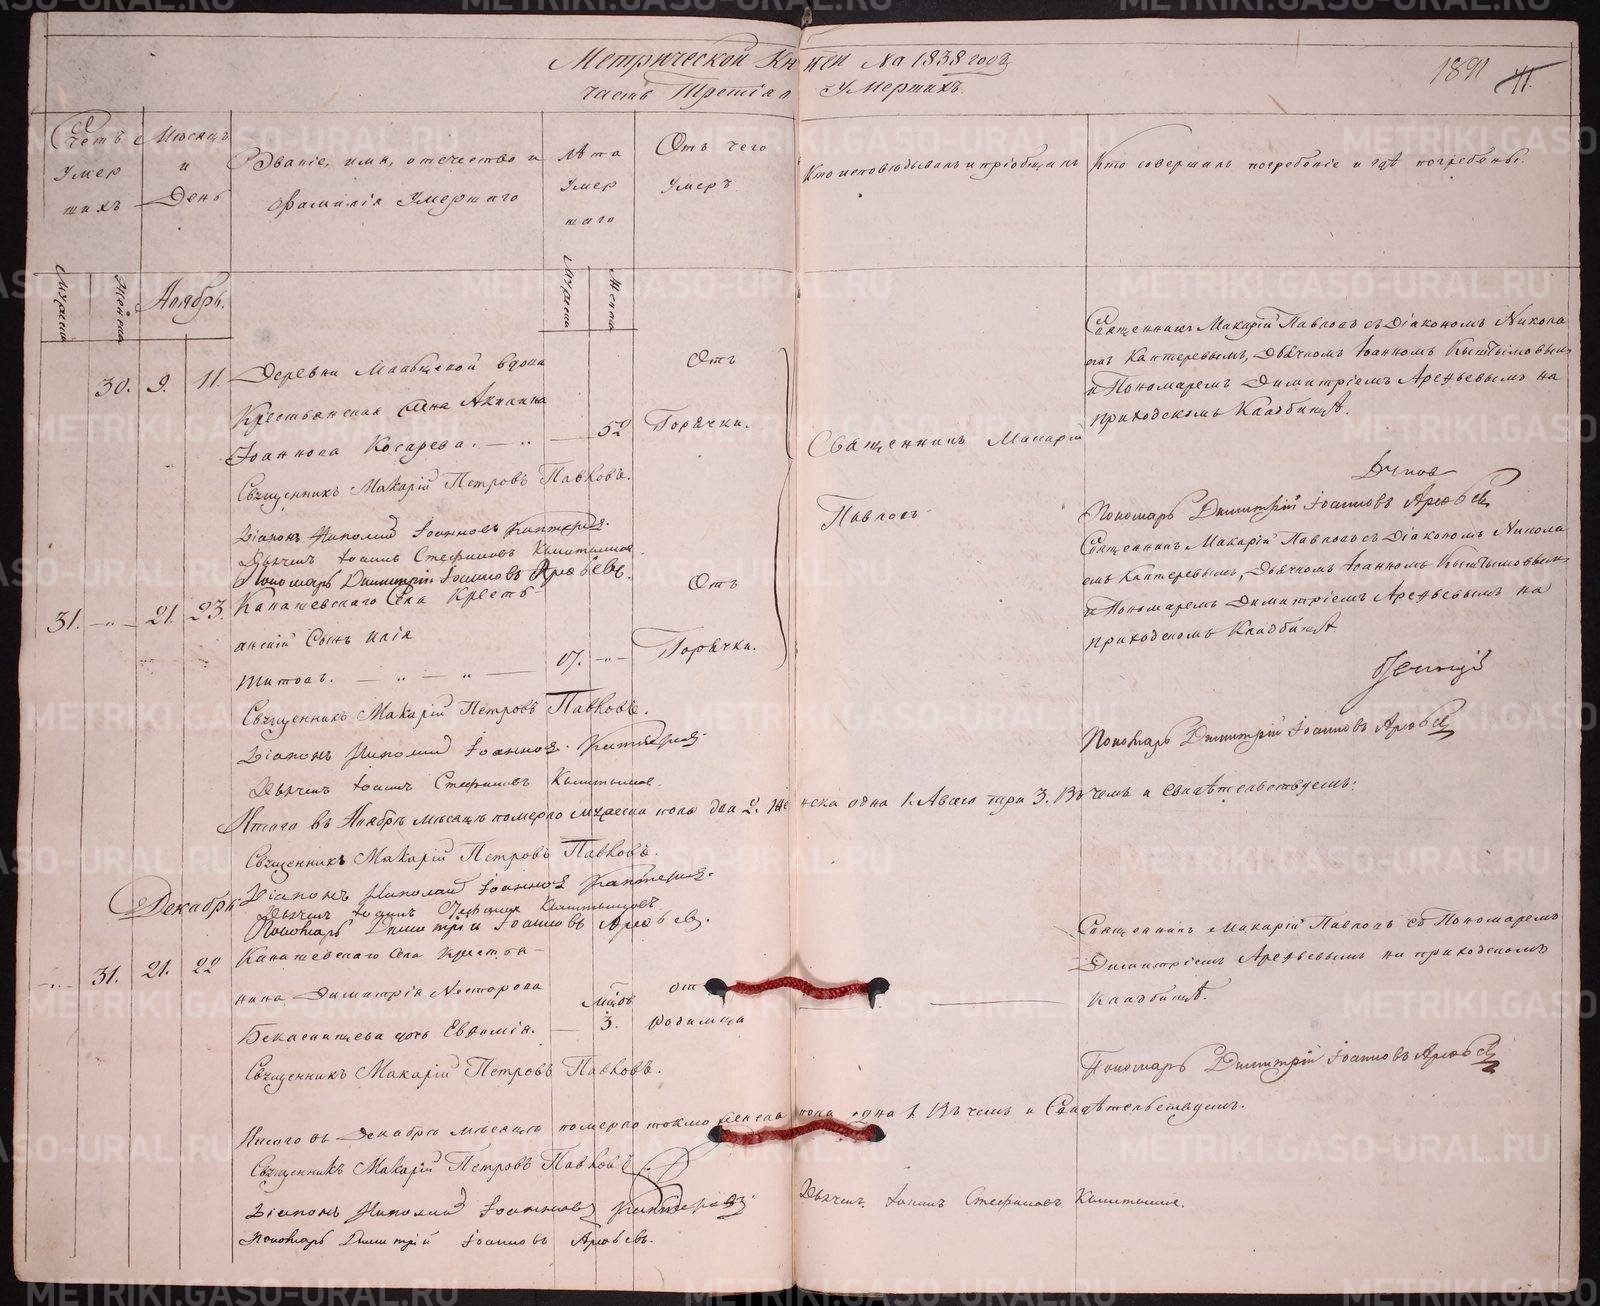 Метрической Книги на 1838 годъ
1891
41.
часть Третiя Умершихъ.
Счетъ Умершихъ
Мѣсяцъ и День
Званiе, имя, отечество и фамилiя Умершаго
Лѣта Умершаго
Отъ чего Умеръ
Кто исповѣдывалъ и прiобщалъ
Кто совершалъ погребенiе и гдѣ погребены.
Мужеска
Женска
Ноябрь.
Мужеска
Женска
30. 9. 11. Деревни вдова
Крестьянская жена Акилина
Iоаннова Косарева. — 52
Отъ
Горячки.
Священникъ Макарiй
Павловъ
Священникъ Макарiй Павловъ съ Дiакономъ Никола
емъ Каптеревымъ, Дьячкомъ Iоанномъ Кыштымовымъ
и Пономаремъ Димитрiемъ Арефьевымъ на
приходскомъ Кладбищѣ.
Священникъ Макарiй Петровъ Павловъ.
Дiаконъ Николай Iоанновъ Каптеревъ.
Дьячекъ Iоаннъ Стефановъ Кыштымовъ
Пономарь Димитрiй Iоанновъ Арефьевъ.
Пономарь Димитрiй Iоанновъ Арефьевъ
31. —„— 21. 23. Канашевскаго Села Кресть
янскiй Сынъ Илiя
Титовъ. — „ — „ — 17. —„—
Отъ
Горячки.
Священникъ Макарiй Павловъ съ Дiакономъ Никола
емъ Каптеревымъ, Дьячкомъ Iоанномъ Кыштымовымъ
и Пономаремъ Димитрiемъ Арефьевымъ на
приходскомъ Кладбищѣ.
Священникъ Макарiй Петровъ Павловъ.
Дiаконъ Николай Iоанновъ Каптеревъ.
Дьячекъ Iоаннъ Стефановъ Кыштымовъ.
Пономарь Димитрiй Iоанновъ Арефьевъ
Итого въ Ноябрѣ мѣсяцѣ померло мужеска пола два 2. Женска одна 1. А всего три 3. Въ чемъ и свидѣтельствуемъ:
Священникъ Макарiй Петровъ Павловъ.
Дiаконъ Николай Iоанновъ Каптеревъ.
Дьячекъ Iоаннъ Стефановъ Кыштымовъ
Пономарь Димитрiй Iоанновъ Арефьевъ.
Декабрь
—„— 31. 21. 22 Канашевскаго Села Крестья
нина Димитрiя Несторова
дочь Евфимiя. — Мѣсяцовъ 3.
отъ
Родимца
Священникъ Макарiй Павловъ съ Пономаремъ
Димитрiемъ Арефьевымъ на приходскомъ
Кладбищѣ.
Священникъ Макарiй Петровъ Павловъ.
Пономарь Димитрiй Iоанновъ Арефьевъ
Итого въ Декабрѣ мѣсяцѣ померло токмо женска пола одна 1. Въ чемъ и Свидѣтельствуемъ.
Священникъ Макарiй Петровъ Павловъ.
Дiаконъ Николай Iоанновъ Каптеревъ
Дьячекъ Iоаннъ Стефановъ Кыштымовъ.
Пономарь Димитрiй Iоанновъ Арефьевъ.
METRIKI.GASO-URAL.RU